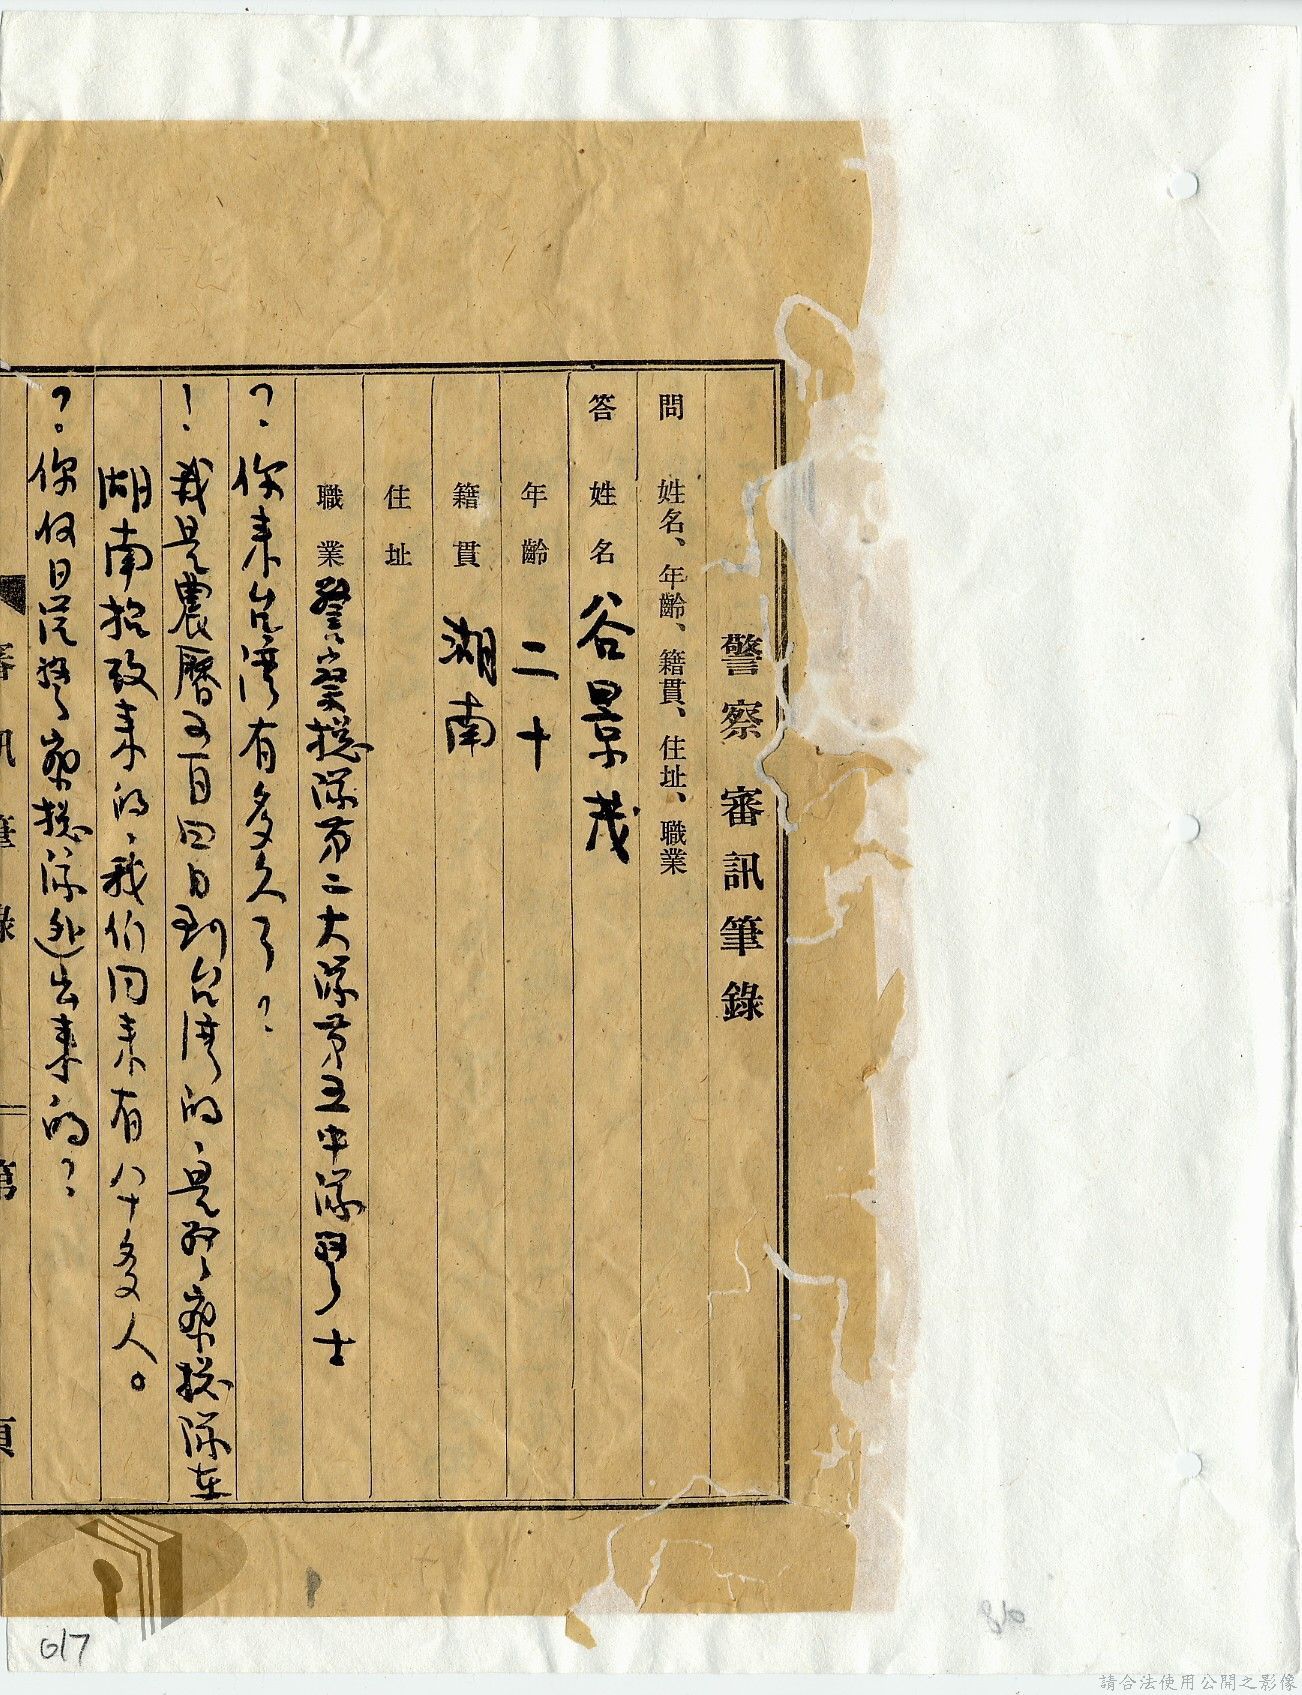 警察審訊筆錄
問 姓名、年齡、籍貫、住址、職業
答 姓名 谷景茂
年齡 二十
籍貫 湖南
住址
職業 警察總隊第二大隊第五中隊警士
?. 你来台湾有多久了?
! 我是農曆五月四日到台湾的,是警察總隊在
湖南招致来的,我们同来有八十多人。
?。你何日從警察總隊逃出来的?
審訊筆錄 第 頁
617
請合法使用公開之影像